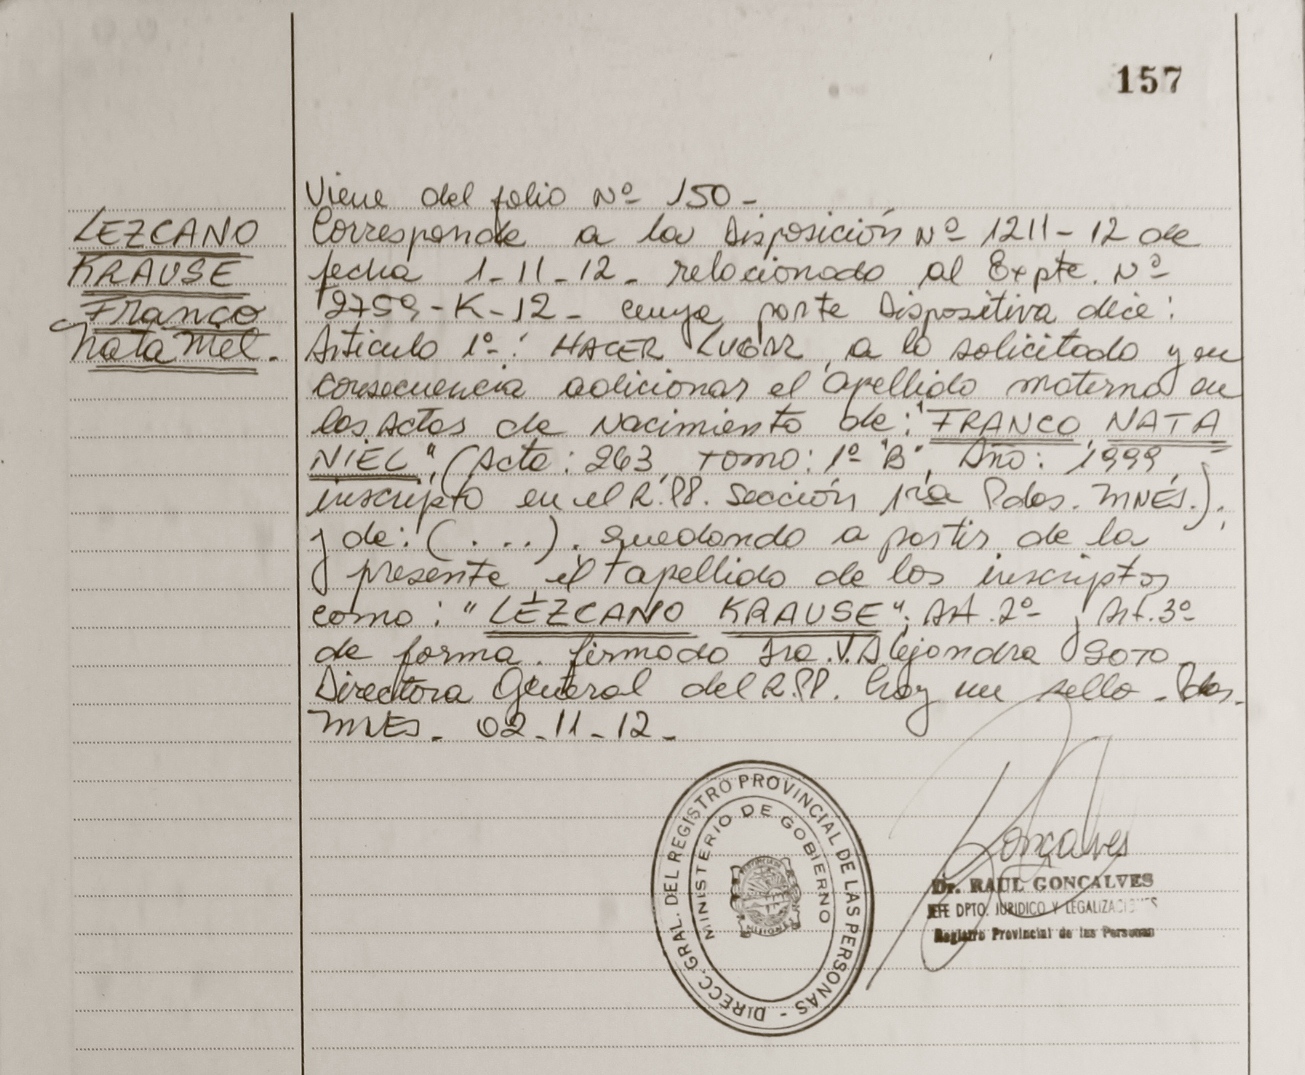 157
LEZCANO
KRAUSE
Franco
Nataniel.
Viene del folio Nº 150-
Corresponde a la Disposición Nº 1211-12 de
fecha 1-11-12- relacionado al Expte. Nº
2759-K-12- cuya parte Dispositiva dice:
Articulo 1º: HACER LUGAR a lo solicitado y en
consecuencia adicionar el apellido materno en
las Actas de Nacimiento de: "FRANCO NATA
NIEL", (Acta: 263, Tomo: 1º "B", Año: 1999,
inscripto en el R.PP. Sección 1ra Pdas. MNES.).
y de: (...). quedando a partir de la
presente el apellido de los inscriptos
como: "LEZCANO KRAUSE"; Art. 2º y Art. 3º
de forma. firmado Dra. V. Alejandra Soto
Directora General del R.PP. hay un sello - Pdas.
MNES. 02-11-12-
DIRECC. GRAL. DEL REGISTRO PROVINCIAL DE LAS PERSONAS -
MINISTERIO DE GOBIERNO
Gonçalves
Dr. RAUL GONCALVES
JEFE DPTO. JURIDICO Y LEGALIZACIONES
Registro Provincial de las Personas